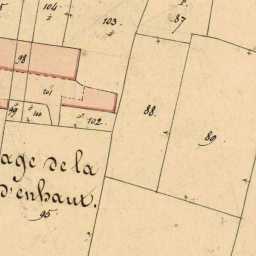 104
103
87
98
101
99
100
102
88
89
age de la
d'enhaut.
95